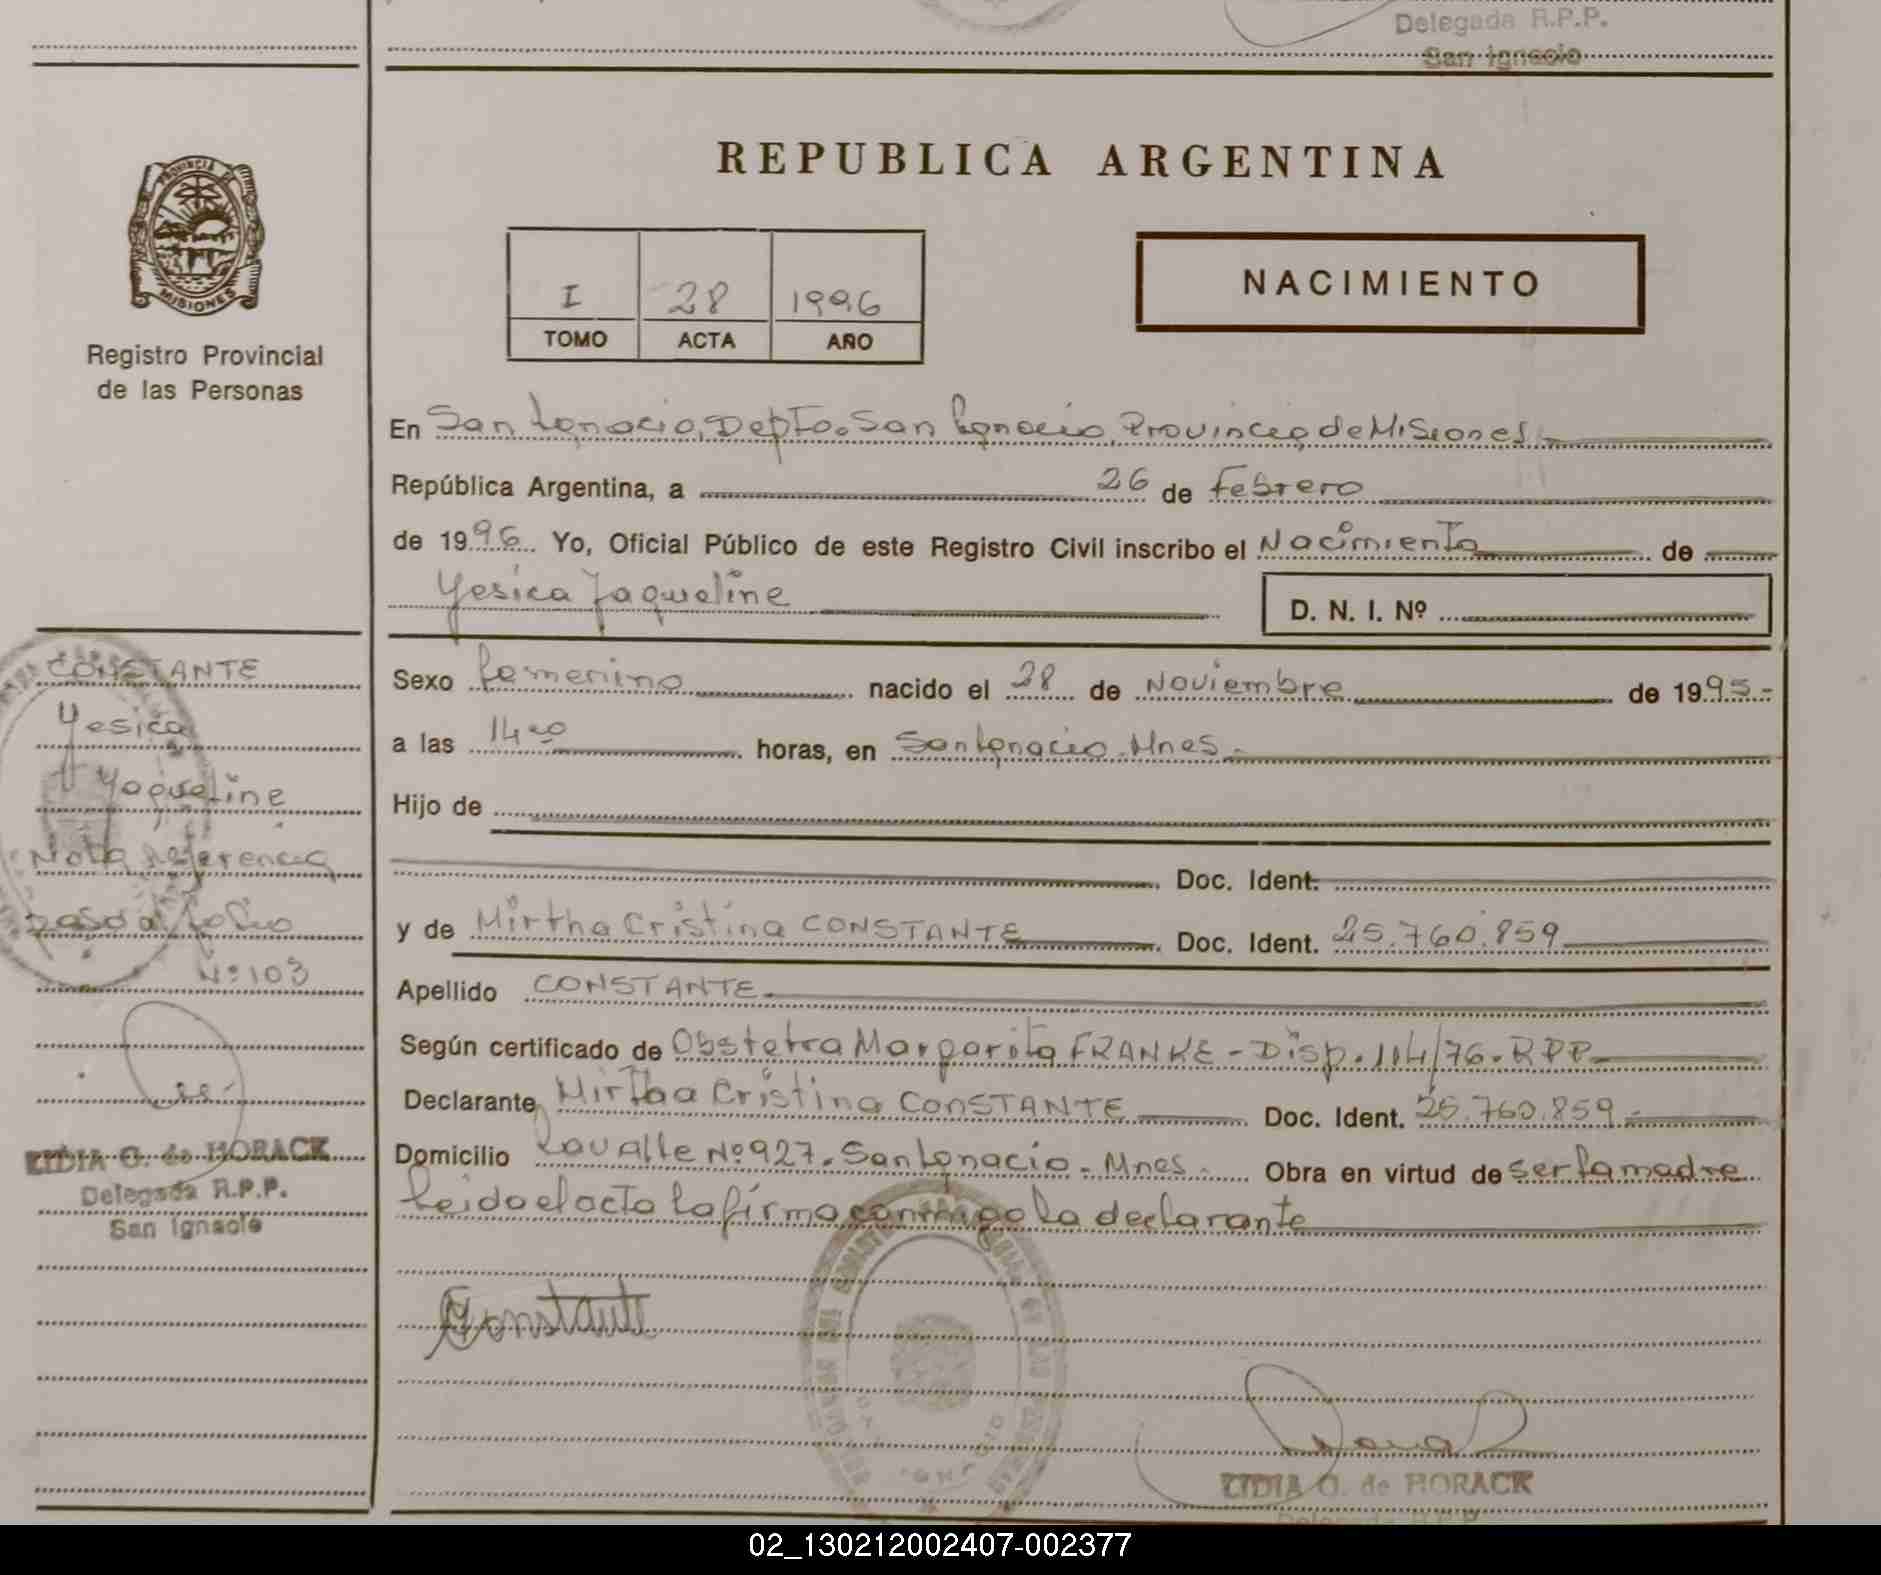 Delegada R.P.P.
San Ignacio
PROVINCIA DE
MISIONES
Registro Provincial
de las Personas
REPUBLICA ARGENTINA
I 28 1996
TOMO ACTA AÑO
NACIMIENTO
En San Ignacio, Depto. San Ignacio, Provincia de Misiones
República Argentina, a 26 de Febrero
de 1996. Yo, Oficial Público de este Registro Civil inscribo el Nacimiento de
Yesica Jaqueline
D. N. I. Nº
Sexo femenino nacido el 28 de Noviembre de 1995.-
a las 14:00 horas, en San Ignacio. Mnes.-
Hijo de
Doc. Ident.
y de Mirtha Cristina CONSTANTE Doc. Ident. 25.760.859
Apellido CONSTANTE
Según certificado de Obstetra Margarita FRANKE - Disp. 114/76. RPP
Declarante Mirtha Cristina CONSTANTE Doc. Ident. 25.760.859.-
Domicilio Lavalle Nº 927. San Ignacio. Mnes. Obra en virtud de ser la madre
leido el acta la firma conmigo la declarante
Constante
LIDIA O. de HORACK
Delegada R.P.P.
CONSTANTE
Yesica
Yaqueline
Nota Referencia
paso a folio
Nº 103
LIDIA O. de HORACK
Delegada R.P.P.
San Ignacio
02_130212002407-002377